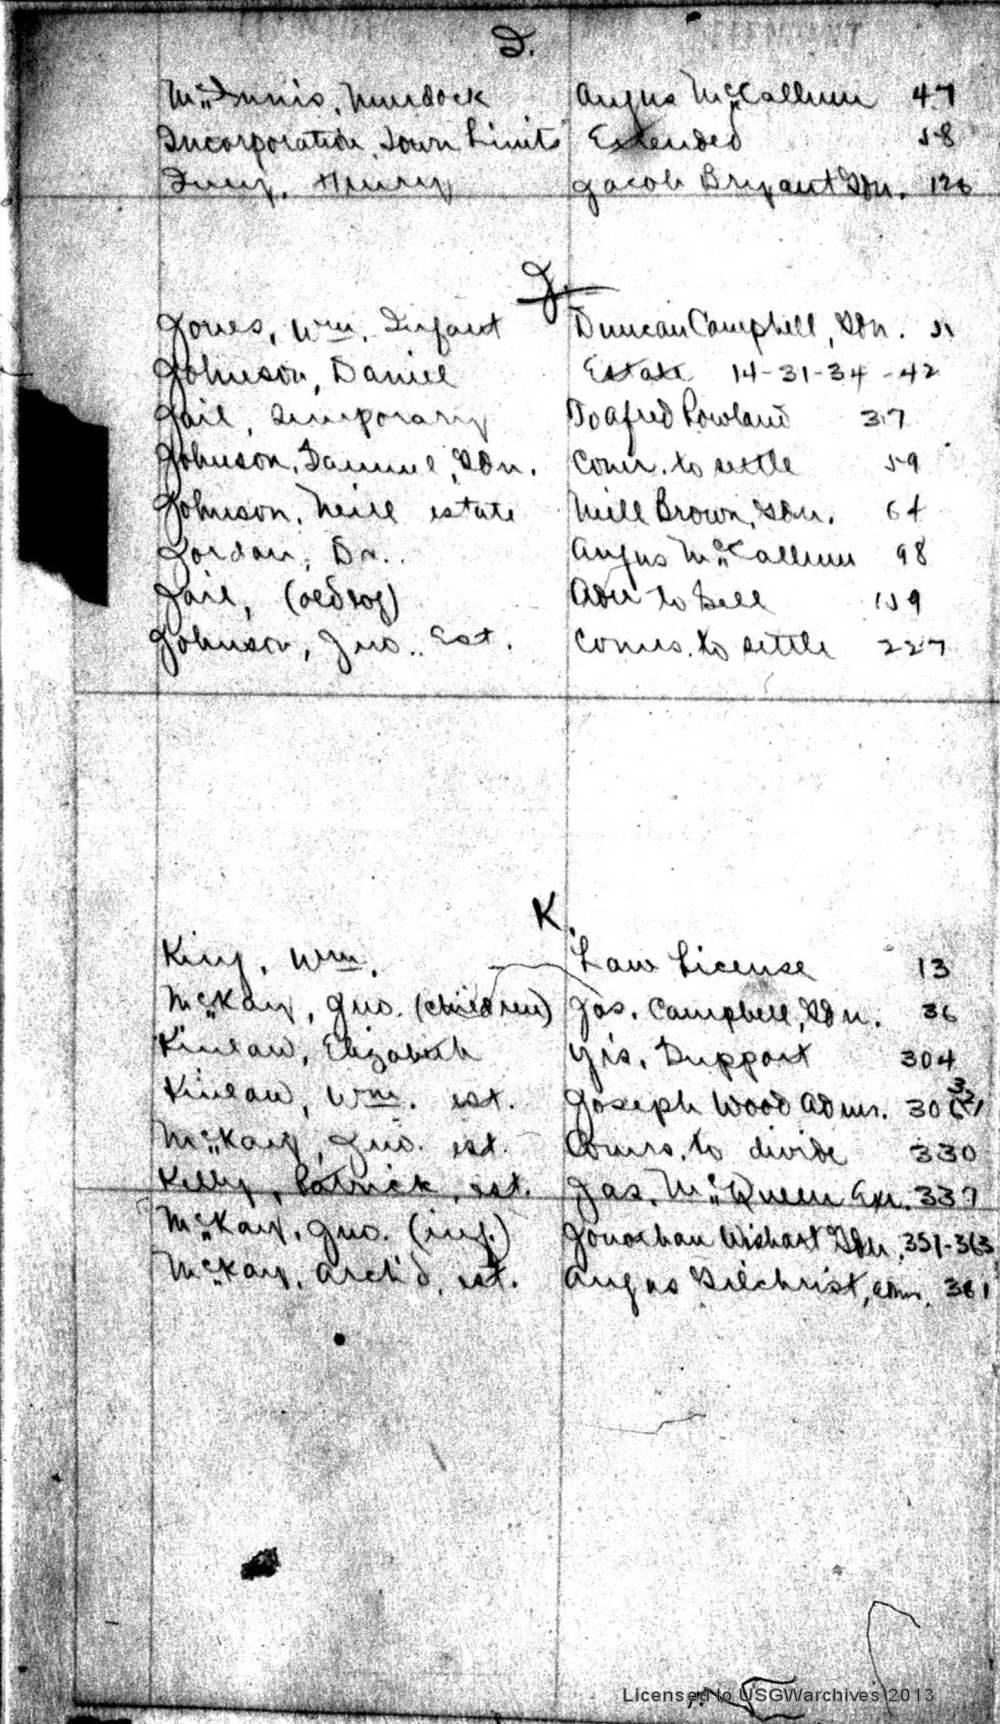 I.
McInnis, Murdock Angus McCallum 47
Incorporation, Town Limits Extended 58
Henry Jacob Bryant Gdn. 126
J.
Jones, Wm. Infant Duncan Campbell, Gdn. 51
Johnson, Daniel Estate 14-31-34-42
Jail, Temporary To Alfred Rowland 37
Johnson, Samuel, Gdn. Comr. to settle 59
Johnson, Neill estate Neill Brown, Gdn. 64
Jordan, Dr. Angus McCallum 98
Jail, (old log) Order to Sell 159
Johnson, Jno. Est. Comrs. to settle 227
K.
King, Wm. Law License 13
McKay, Jno. (children) Jas. Campbell, Gdn. 36
Kinlaw, Elizabeth Yrs. Support 304
Kinlaw, Wm. est. Joseph Wood Admr.
McKay, Jno. est. Comrs. to divide 330
Kelly, Patrick, est. Jas. McQueen Exr. 337
McKay, Jno. (inf.) Jonathan Wishart Gdn. 351-363
McKay, Arch'd, est. Angus Gilchrist, Admr. 381
Licensed to USGWarchives 2013